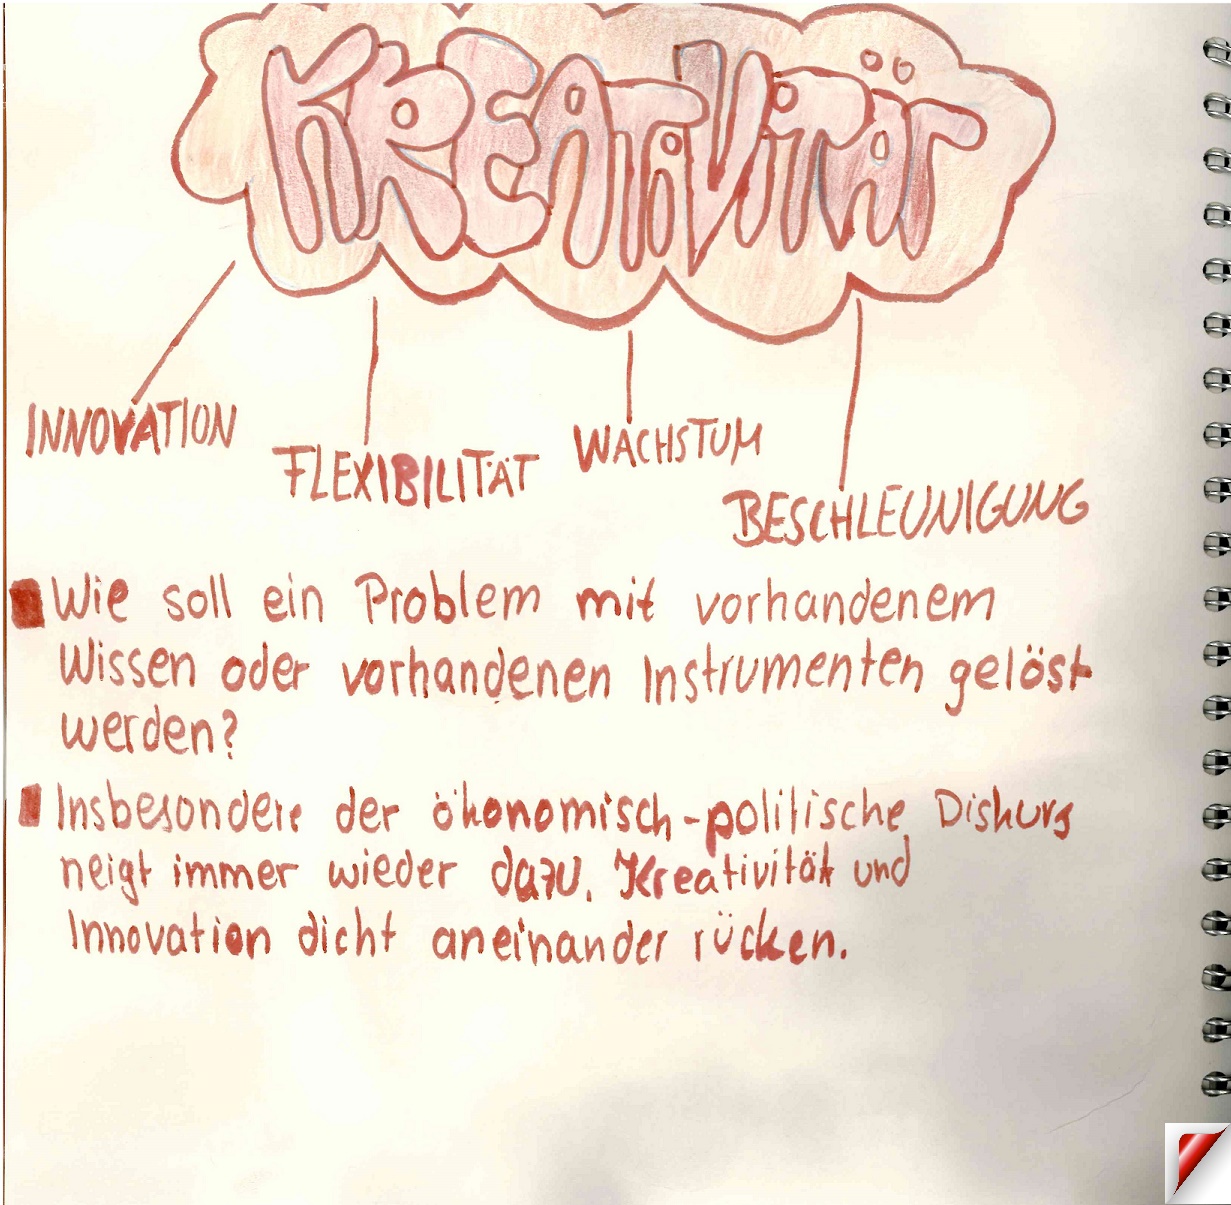 KREATiViTÄT
INNOVATION
FLEXIBILITÄT
WACHSTUM
BESCHLEUNIGUNG
Wie soll ein Problem mit vorhandenem
Wissen oder vorhandenen Instrumenten gelöst
werden?
Insbesondere der ökonomisch-politische Diskurs
neigt immer wieder dazu, Kreativität und
Innovation dicht aneinander rücken.